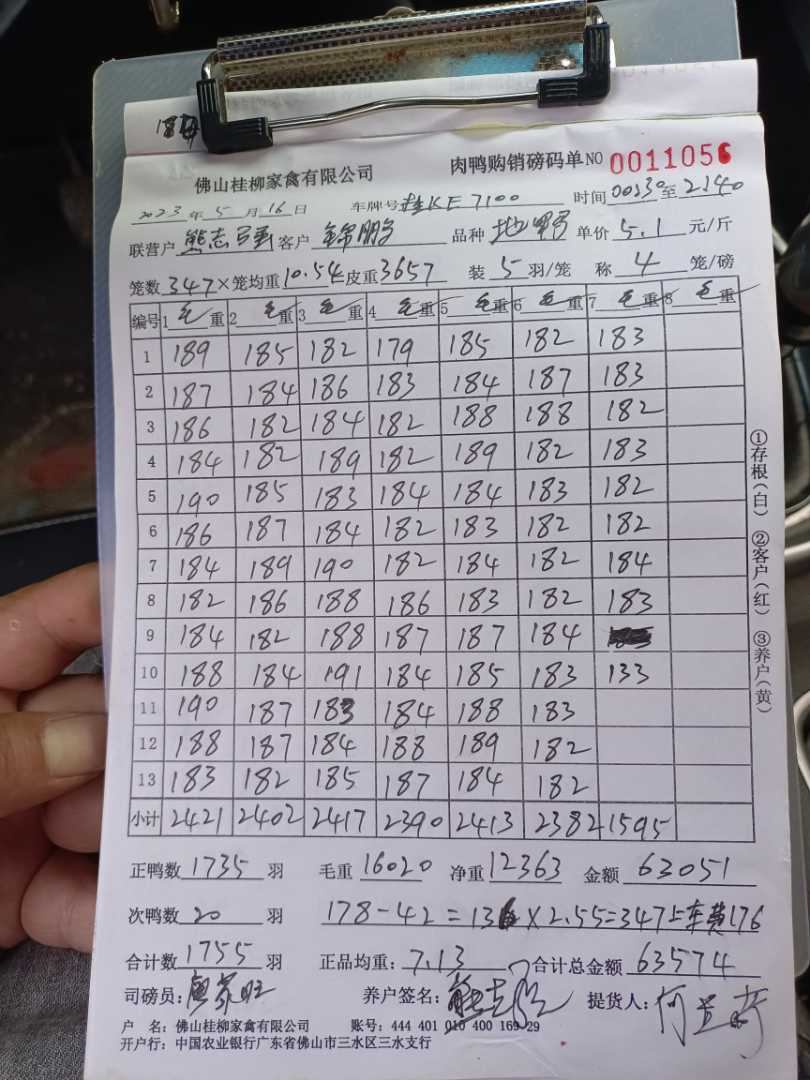 佛山桂柳家禽有限公司 肉鸭购销磅码单NO 0011056
2023年5月16日 车牌号桂KE7100 时间0030至2140
联营户熊志 客户锦鹏 品种地野 单价5.1元/斤
笼数347×笼均重10.54皮重3657 装5羽/笼 称4笼/磅
编号 1毛重 2毛重 3毛重 4毛重 5毛重 6毛重 7毛重 8毛重
1 189 185 182 179 185 182 183
2 187 184 186 183 184 187 183
3 186 182 184 182 188 188 182
4 184 182 189 182 189 182 183
5 190 185 183 184 184 183 182
6 186 187 184 182 183 182 182
7 184 189 190 182 184 182 184
8 182 186 188 186 183 182 183
9 184 182 188 187 187 184
10 188 184 191 184 185 183 133
11 190 187 183 184 188 183
12 188 187 184 188 189 182
13 183 182 185 187 184 182
小计 2421 2402 2417 2390 2413 2382 1595
正鸭数1735羽 毛重16020 净重12363 金额63051
次鸭数20羽 178-42=136×2.55=347 车费176
合计数1755羽 正品均重:7.13 合计总金额63574
司磅员: 养户签名: 提货人:
户 名:佛山桂柳家禽有限公司 账号:444 401 010 400 169 29
开户行:中国农业银行广东省佛山市三水区三水支行
①存根(白) ②客户(红) ③养户(黄)